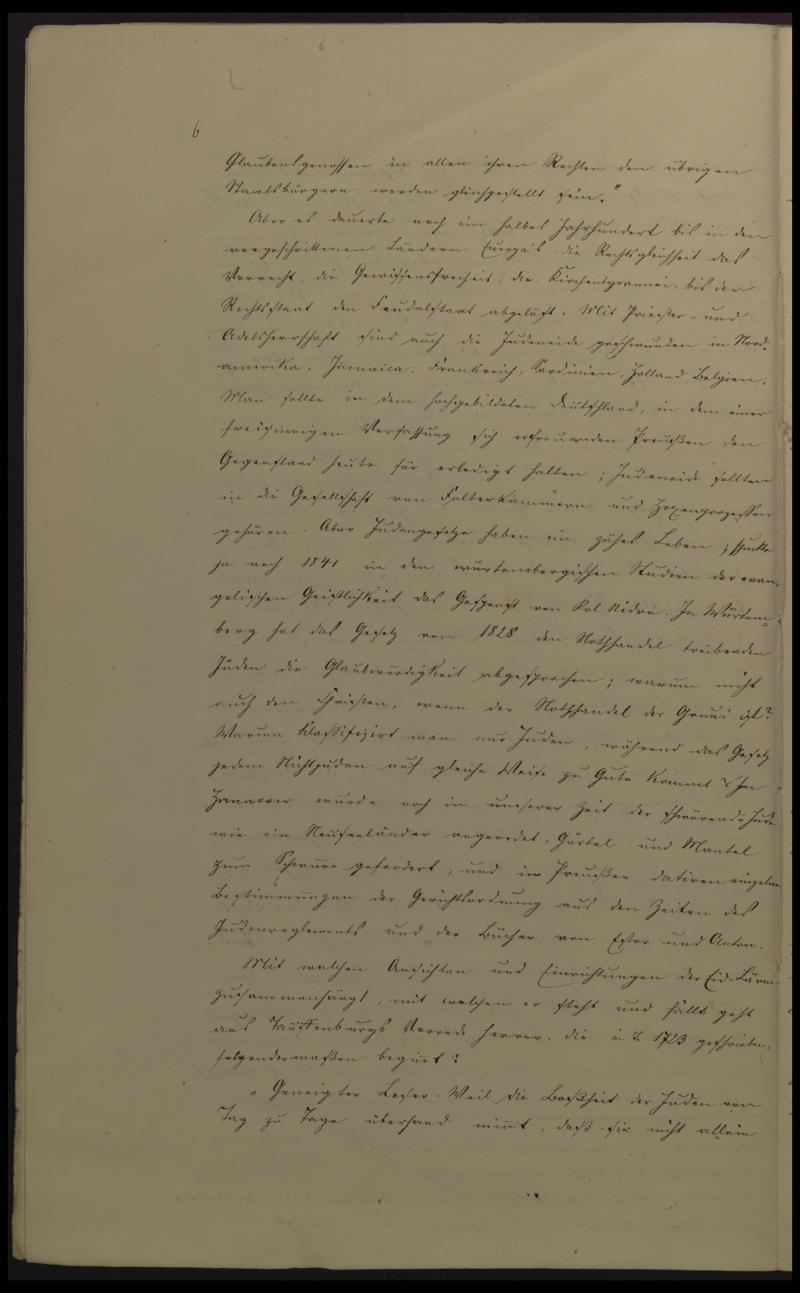 6
Glaubensgenossen in allen ihren Rechten den übrigen
Staatsbürgern werden gleichgestellt sein."
Aber es dauerte noch ein halbes Jahrhundert bis in den
vorgeschrittenen Ländern Europa's die Rechtsgleichheit das
Vorrecht, die Gewissensfreiheit die Kirchentyrannei, bis der
Rechtsstaat den Feudalstaat abgelöst. Mit Priester- und
Adelsherrschaft sind auch die Judeneide geschwunden in Nord-
amerika, Jamaica, Frankreich, Sardinien, Holland Belgien.
Man sollte in dem hochgebildeten Deutschland, in dem einer
freisinnigen Verfassung sich erfreuenden Preußen den
Gegenstand heute für erledigt halten; Judeneide sollten
in die Gesellschaft von Folterkammern und Hexenprozessen
gehören. Aber Judengesetze haben ein zähes Leben; spukte
ja noch 1841 in den würtembergischen Studien der evan-
gelischen Geistlichkeit das Gespenst von Kol Nidre. In Würtem-
berg hat das Gesetz von 1828 den Nothhandel treibenden
Juden die Glaubwürdigkeit abgesprochen; warum nicht
auch den Christen, wenn der Nothhandel der Grund ist?
Warum klassifizirt man nur Juden, während das Gesetz
jedem Nichtjuden auf gleiche Weise zu Gute kommt? In
Hannover wurde noch in unserer Zeit der schwörende Jude
wie ein Neuseeländer angeredet, Gürtel und Mantel
zum Schwure gefordert, und in Preußen datiren einzelne
Bestimmungen der Gerichtsordnung aus den Zeiten des
Judenreglements und der Bücher von Estor und Anton.
Mit welchen Ansichten und Einrichtungen der Eid-Lärm
zusammenhängt, mit welchen er steht und fällt, geht
aus Vorrede hervor, die in J. 1723 geschrieben,
folgendermaßen beginnt:
"Geneigter Leser. Weil die Boßheit der Juden von
Tag zu Tage überhand nimt, daß sie nicht allein